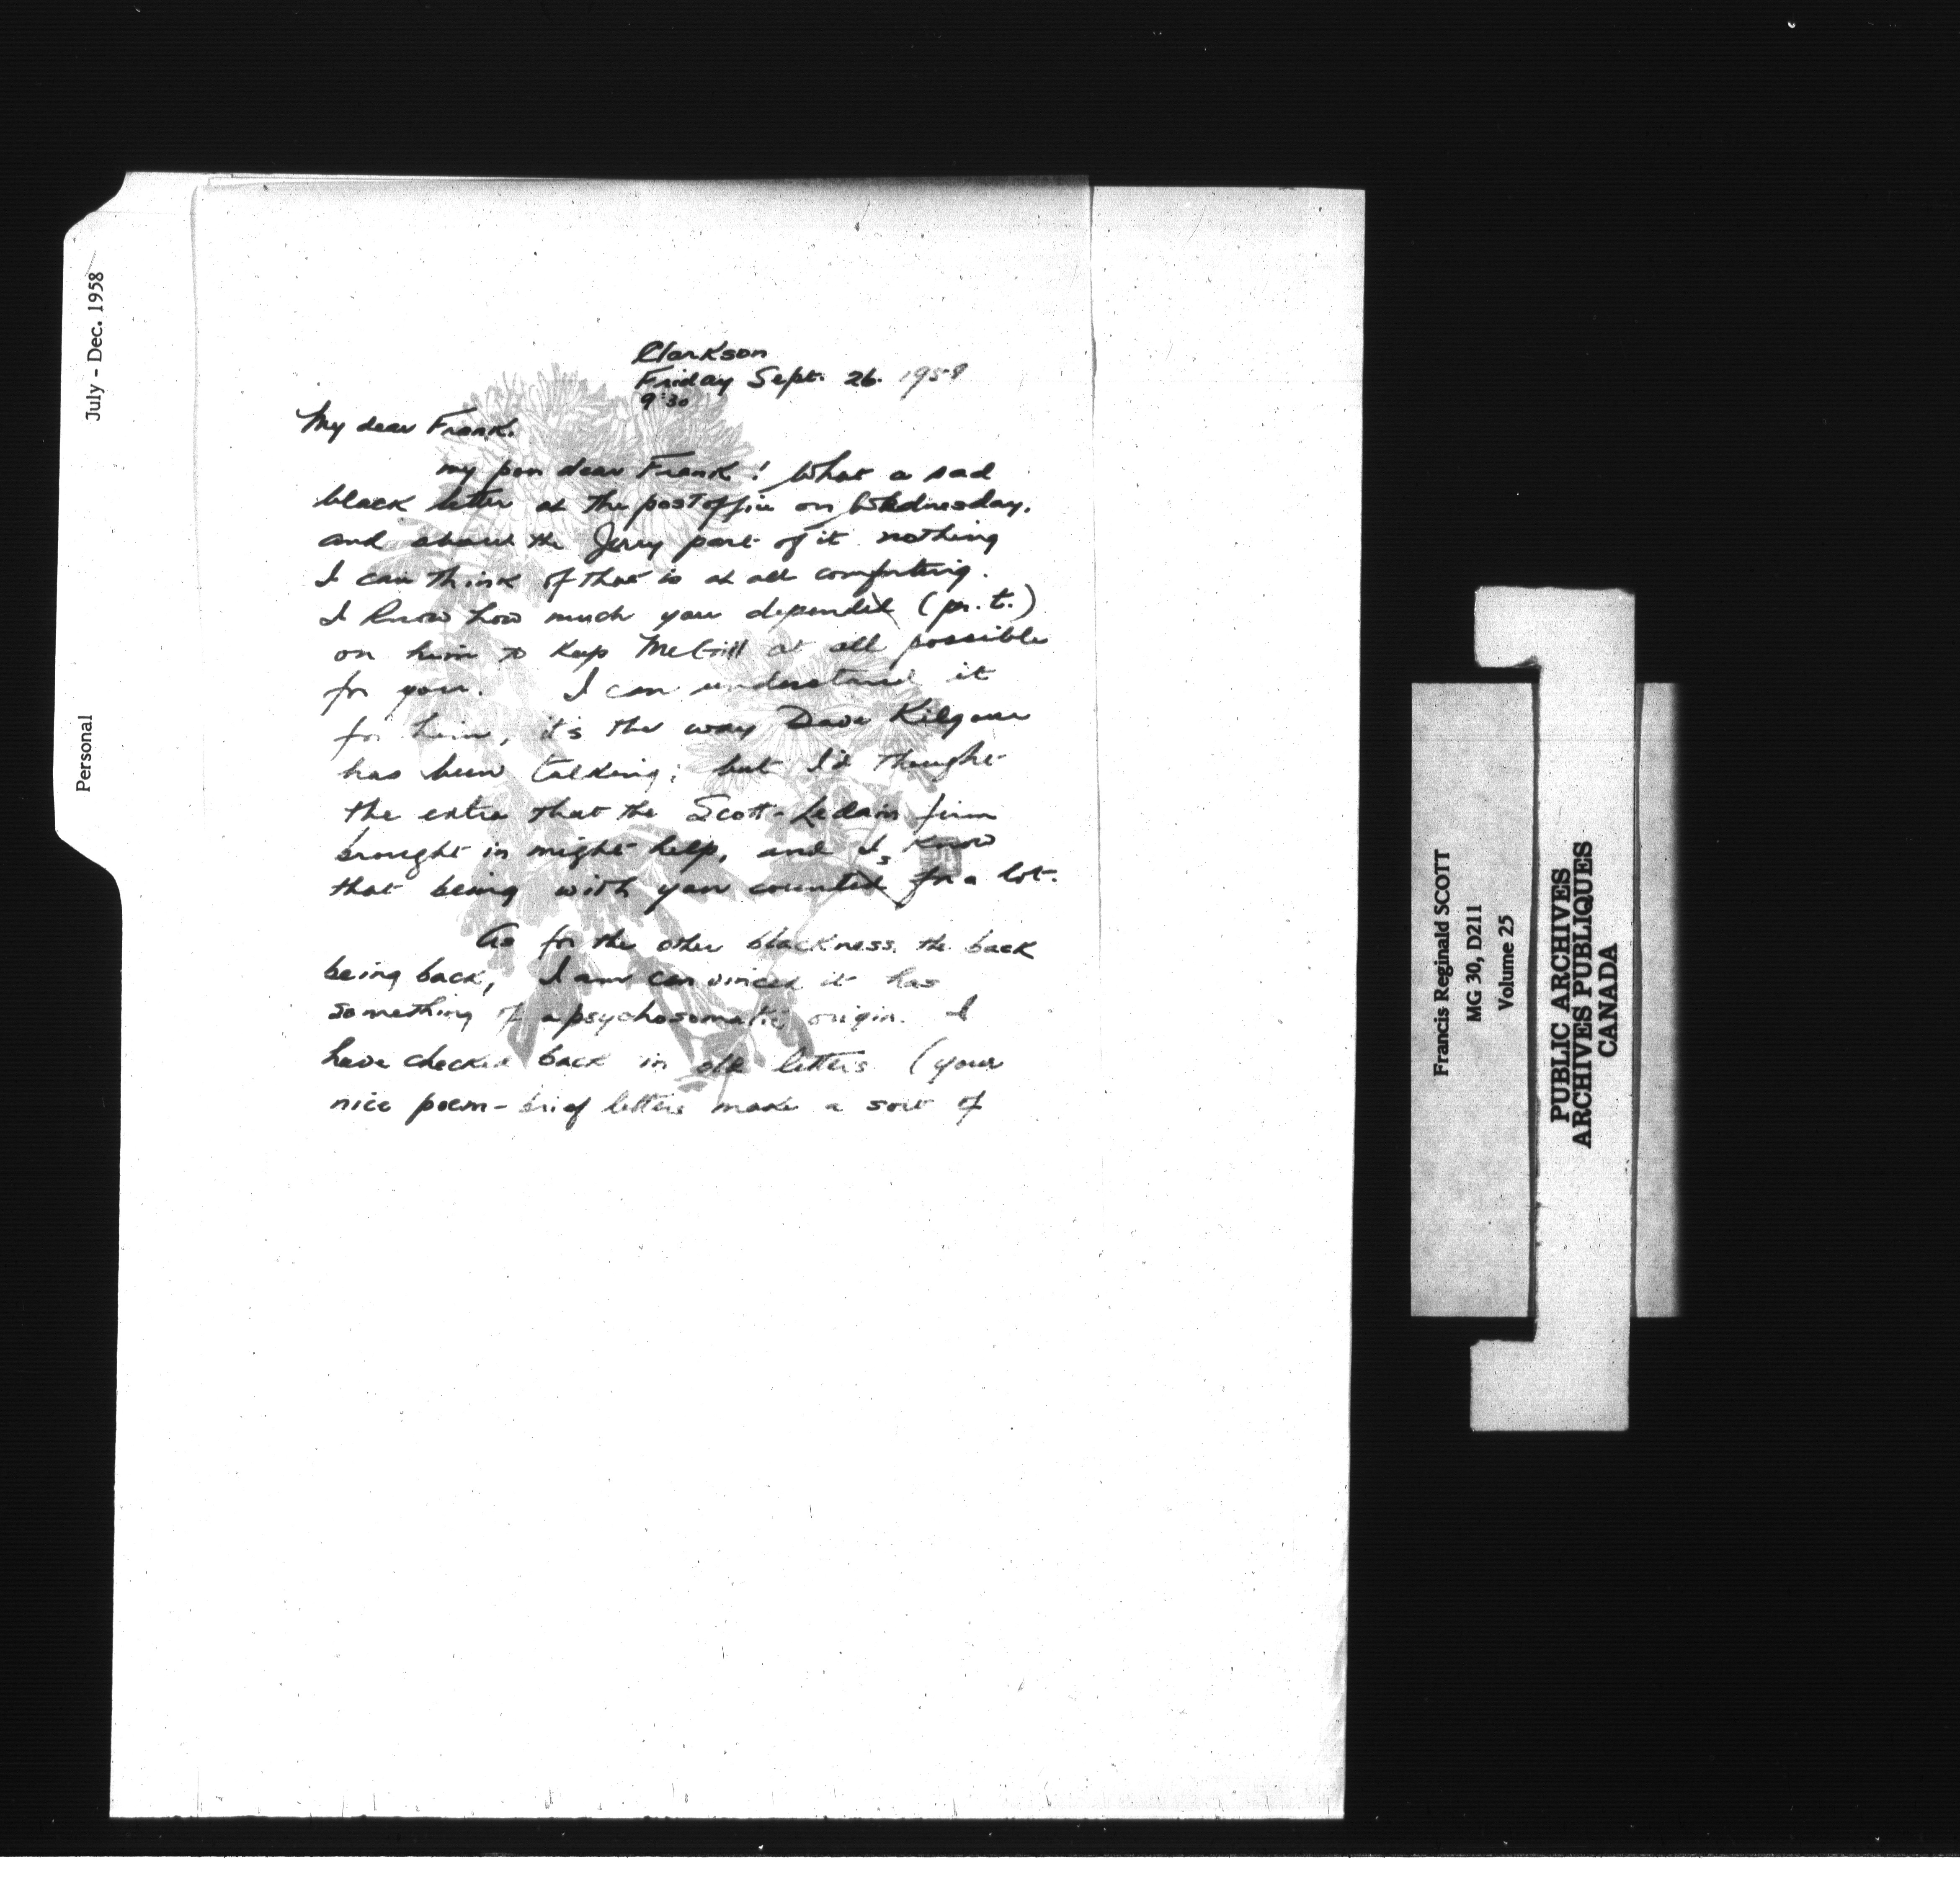 July - Dec. 1958
Personal
Clarkson
Friday Sept. 26. 1958
9:30
My dear Frank.
my poor dear Frank! What a sad
black letter at the postoffice on Wednesday.
and about the Jerry part of it nothing
I can think of that is at all comforting.
I know how much you depended (p.t.)
on him to keep McGill at all possible
for you. I can understand it
for him, it's the way Dave Kilgour
has been talking; but I'd thought
the extra that the Scott-LeDain firm
brought in might help, and I know
that being with you counted for a lot.
As for the other blackness, the back
being back, I am convinced it has
something of a psychosomatic origin. I
have checked back in old letters (your
nice poem-brief letters make a sort of
Francis Reginald SCOTT
MG 30, D211
Volume 25
PUBLIC ARCHIVES
ARCHIVES PUBLIQUES
CANADA